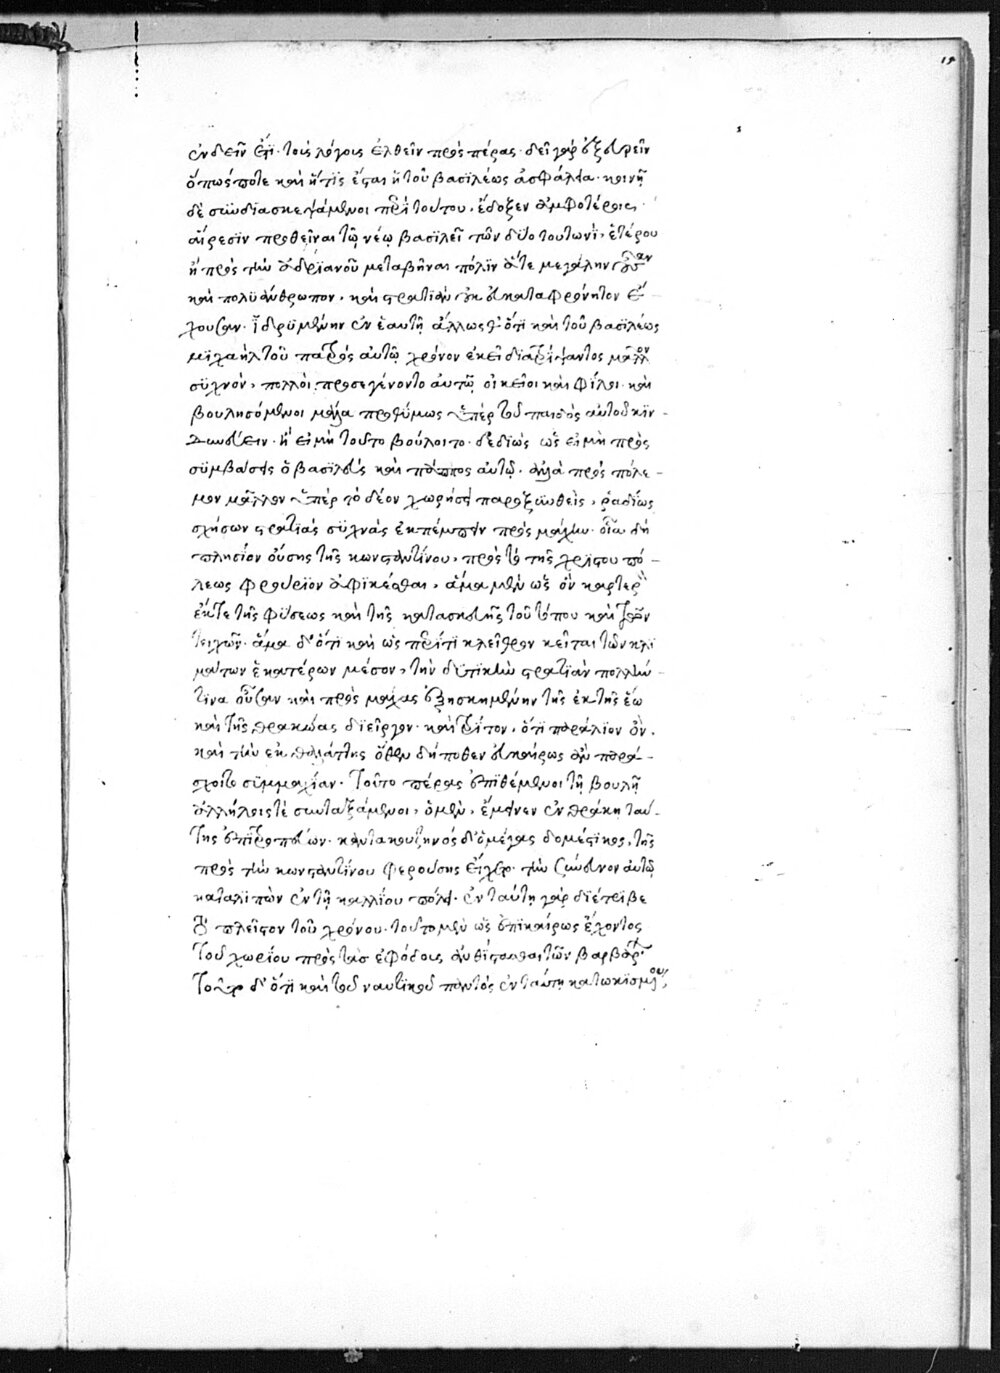 19
ἐνδεῖν ἔτι τοῖς λόγοις ἐλθεῖν πρὸς πέρας. δεῖ γὰρ ἐξευρεῖν
ὅπως ποτὲ καὶ ἥτις ἔσται ἡ τοῦ βασιλέως ἀσφάλεια. κοινῇ
δὲ συνδιασκεψάμενοι περὶ τούτου, ἔδοξεν ἀμφοτέροις
αἵρεσιν προθεῖναι τῷ νέῳ βασιλεῖ τῶν δύο τουτωνὶ, ἑτέρου
ἢ πρὸς τὴν ἀδριανοῦ μεταβῆναι πόλιν ἅτε μεγάλην οὖσαν
καὶ πολυάνθρωπον, καὶ στρατιὰν οὐκ εὐκαταφρόνητον ἔ-
χουσαν ἱδρυμένην ἐν ἑαυτῇ ἄλλως θ' ὅτι καὶ τοῦ βασιλέως
μιχαὴλ τοῦ πατρὸς αὐτῷ χρόνον ἐκεῖ διατρίψαντος μᾶλλον
συχνὸν, πολλοὶ προσεγένοντο αὐτῷ οἰκεῖοι καὶ φίλοι καὶ
βουλησόμενοι μάλα προθύμως ὑπὲρ τοῦ παιδὸς αὐτοῦ κιν-
δυνεύειν. ἢ εἰ μὴ τοῦτο βούλοιτο. δεδιὼς ὡς εἰ μὴ πρὸς
συμβάσεις ὁ βασιλεὺς καὶ πάππος αὐτῷ, ἀλλὰ πρὸς πόλε-
μον μᾶλλον ὑπὲρ τὸ δέον χωρήσει παροξυνθεὶς, ῥαδίως
σχήσων στρατιὰς συχνὰς ἐκπέμπειν πρὸς μάχην. οἷα δὴ
πλησίον οὔσης τῆς κωνσταντίνου, πρὸς τὸ τῆς χριστοῦ πό-
λεως φρούριον ἀφικέσθαι, ἅμα μὲν ὡς ὂν καρτερὸν
ἔκ τε τῆς φύσεως καὶ τῆς κατασκευῆς τοῦ τόπου καὶ τῶν
τειχῶν. ἅμα δ' ὅτι καὶ ὡς περ τι κλεῖθρον κεῖται τῶν κλι
μάτων ἑκατέρων μέσον, τὴν δυτικὴν στρατιὰν πολλήν
τινα οὖσαν καὶ πρὸς μάχας ἐξησκημένην τῆς ἐκ τῆς ἕω
καὶ τῆς θρακώας διεῖργον. καὶ τρίτον, ὅτι παράλιον ὂν,
καὶ τὴν ἐκ θαλάττης ὅθεν δήποθεν εὐκαίρως ἂν παρά-
σχοιτο συμμαχίαν. τοῦτο πέρας ἐπιθέμενοι τῇ βουλῇ
ἀλλήλοις τὲ συνταξάμενοι, ὁ μὲν, ἔμεινεν ἐν θράκῃ ταύ-
της ἐπιτροπεύων. καντακουζηνὸς δ' ὁ μέγας δομέστικος, τῆς
πρὸς τὴν κωνσταντίνου φερούσης εἴχετο τὴν σύνευνον αὐτῷ
καταλιπὼν ἐν τῇ καλλίου πόλει. ἐν ταύτῃ γὰρ διέτριβε
τὸ πλεῖστον τοῦ χρόνου. τοῦτο μὲν ὡς ἐπικαίρως ἔχοντος
τοῦ χωρίου πρὸς τὰς ἐφόδους ἀνθίστασθαι τῶν βαρβάρων
τοῦτο δ' ὅτι καὶ τοῦ ναυτικοῦ παντὸς ἐν ταύτῃ κατῳκισμένου,